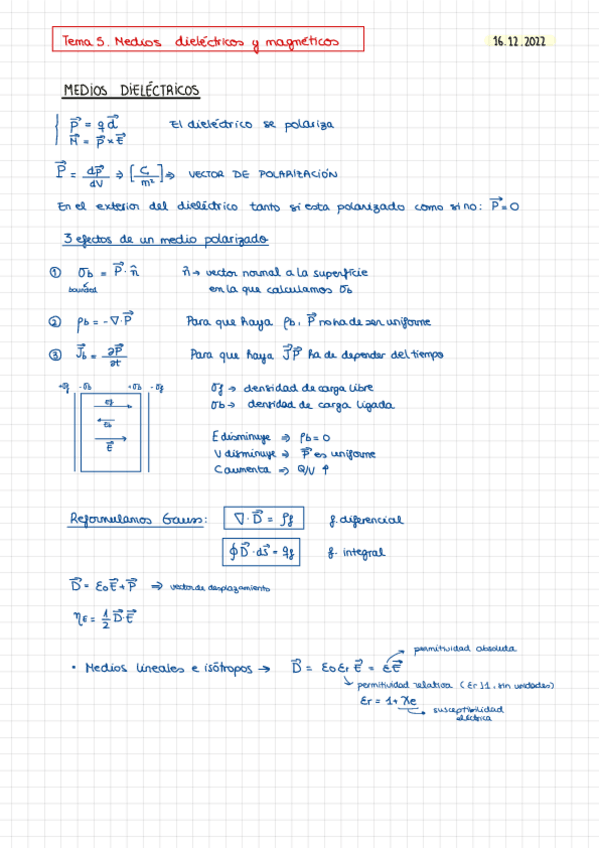 Tema 5. Medios dieléctricos y magnéticos
16.12.2022
MEDIOS DIELÉCTRICOS
p⃗ = q d⃗ El dieléctrico se polariza
M⃗ = p⃗ × E⃗
P⃗ = dp⃗/dV ⇒ [C/m²] ⇒ VECTOR DE POLARIZACIÓN
En el exterior del dieléctrico tanto si esta polarizado como si no: P⃗ = 0
3 efectos de un medio polarizado
① σb = P⃗ · n̂ n̂ → vector normal a la superfície
bounded en la que calculamos σb
② ρb = -∇·P⃗ Para que haya ρb, P⃗ no ha de ser uniforme
③ J⃗b = ∂P⃗/∂t Para que haya J⃗P⃗ ha de depender del tiempo
+σf -σb +σb -σf
σf → densidad de carga libre
σb → densidad de carga ligada
E⃗
E disminuye ⇒ ρb = 0
V disminuye → P⃗ es uniforme
C aumenta ⇒ Q/V ↑
Reformulamos Gauss: ∇·D⃗ = ρf f. diferencial
∮D⃗·ds⃗ = qf f. integral
D⃗ = ε0E⃗ + P⃗ ⇒ vector de desplazamiento
ηE = 1/2 D⃗·E⃗
permitividad absoluta
• Medios lineales e isótropos → D⃗ = ε0 εr E⃗ = εE⃗
permitividad relativa (εr ⟩ 1, sin unidades)
εr = 1 + χe
susceptibilidad
eléctrica